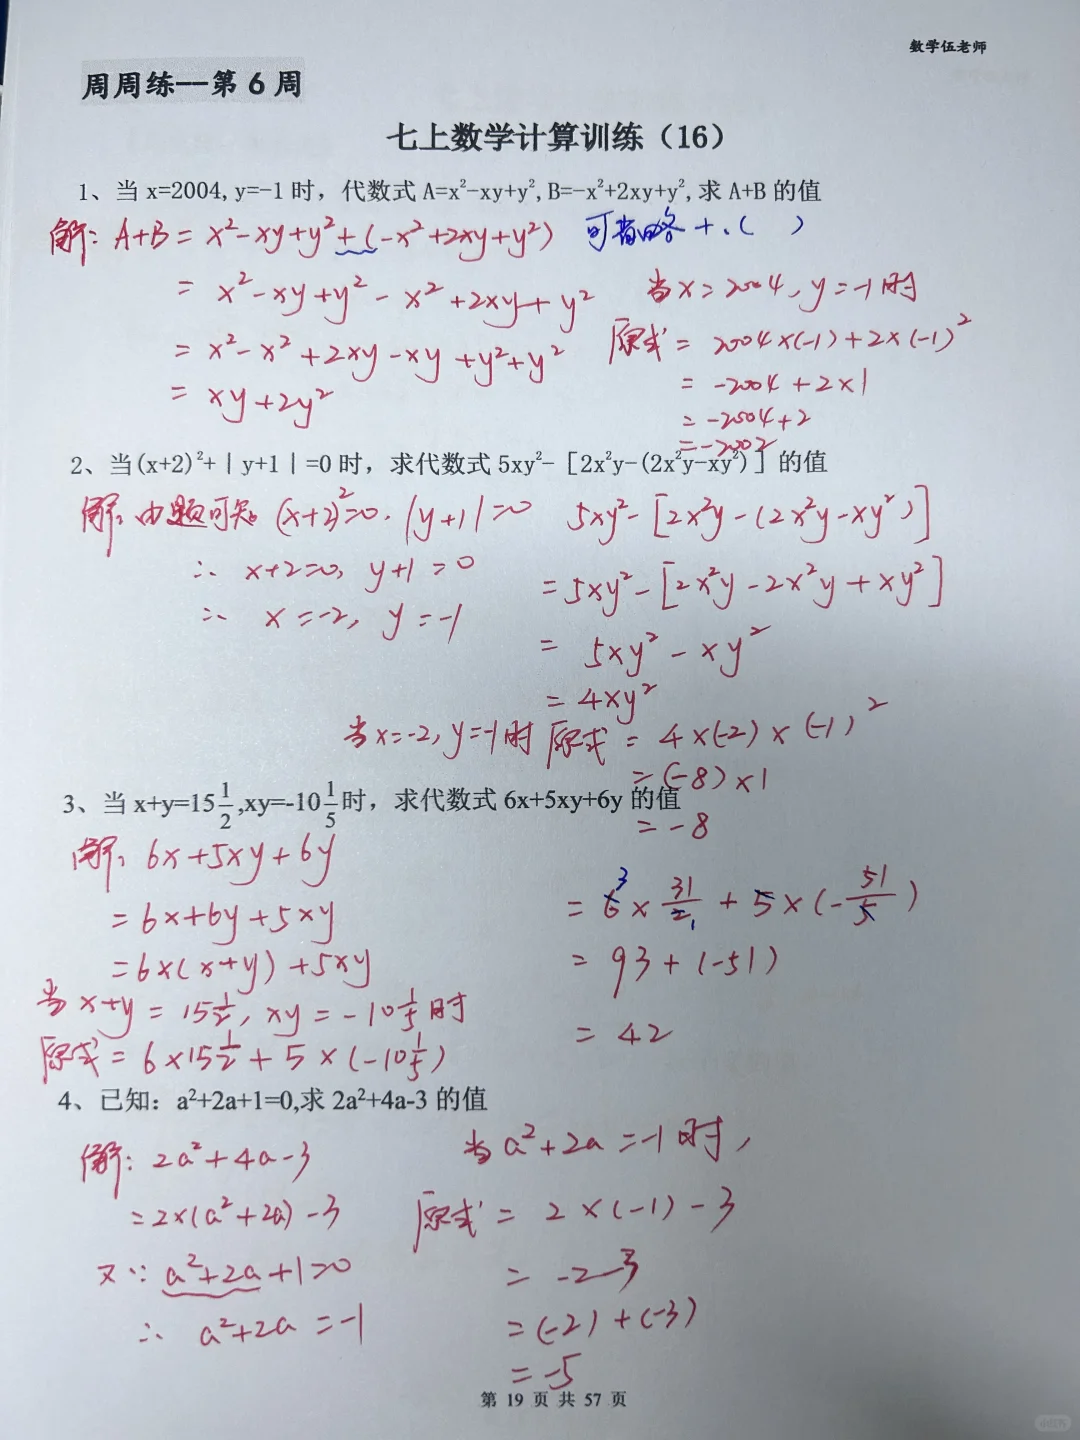 数学伍老师
周周练——第6周
七上数学计算训练（16）
1、当 x=2004, y=-1 时，代数式 A=x²-xy+y², B=-x²+2xy+y², 求 A+B 的值
解: A+B = x²-xy+y²+(-x²+2xy+y²) 可省略 +、( )
= x²-xy+y²-x²+2xy+y²
= x²-x²+2xy-xy+y²+y²
= xy+2y²
当 x=2004, y=-1时
原式 = 2004×(-1)+2×(-1)²
= -2004+2×1
= -2004+2
= -2002
2、当(x+2)²+|y+1|=0 时，求代数式 5xy²-［2x²y-(2x²y-xy²)］的值
解: 由题可知 (x+2)²=0, |y+1|=0
∴ x+2=0, y+1=0
∴ x=-2, y=-1
5xy²-[2x²y-(2x²y-xy²)]
=5xy²-[2x²y-2x²y+xy²]
= 5xy²-xy²
= 4xy²
当x=-2, y=-1时 原式 = 4×(-2)×(-1)²
= (-8)×1
= -8
3、当 x+y=15 1/2, xy=-10 1/5 时，求代数式 6x+5xy+6y 的值
解: 6x+5xy+6y
= 6x+6y+5xy
= 6×(x+y)+5xy
当 x+y = 15 1/2, xy = -10 1/5 时
原式 = 6×15 1/2 + 5×(-10 1/5)
= 6×31/2 + 5×(-51/5)
3 1
= 93+(-51)
= 42
4、已知：a²+2a+1=0,求 2a²+4a-3 的值
解: 2a²+4a-3
= 2×(a²+2a)-3
又∵ a²+2a+1=0
∴ a²+2a=-1
当 a²+2a=-1时,
原式 = 2×(-1)-3
= -2-3
= (-2)+(-3)
= -5
第 19 页 共 57 页